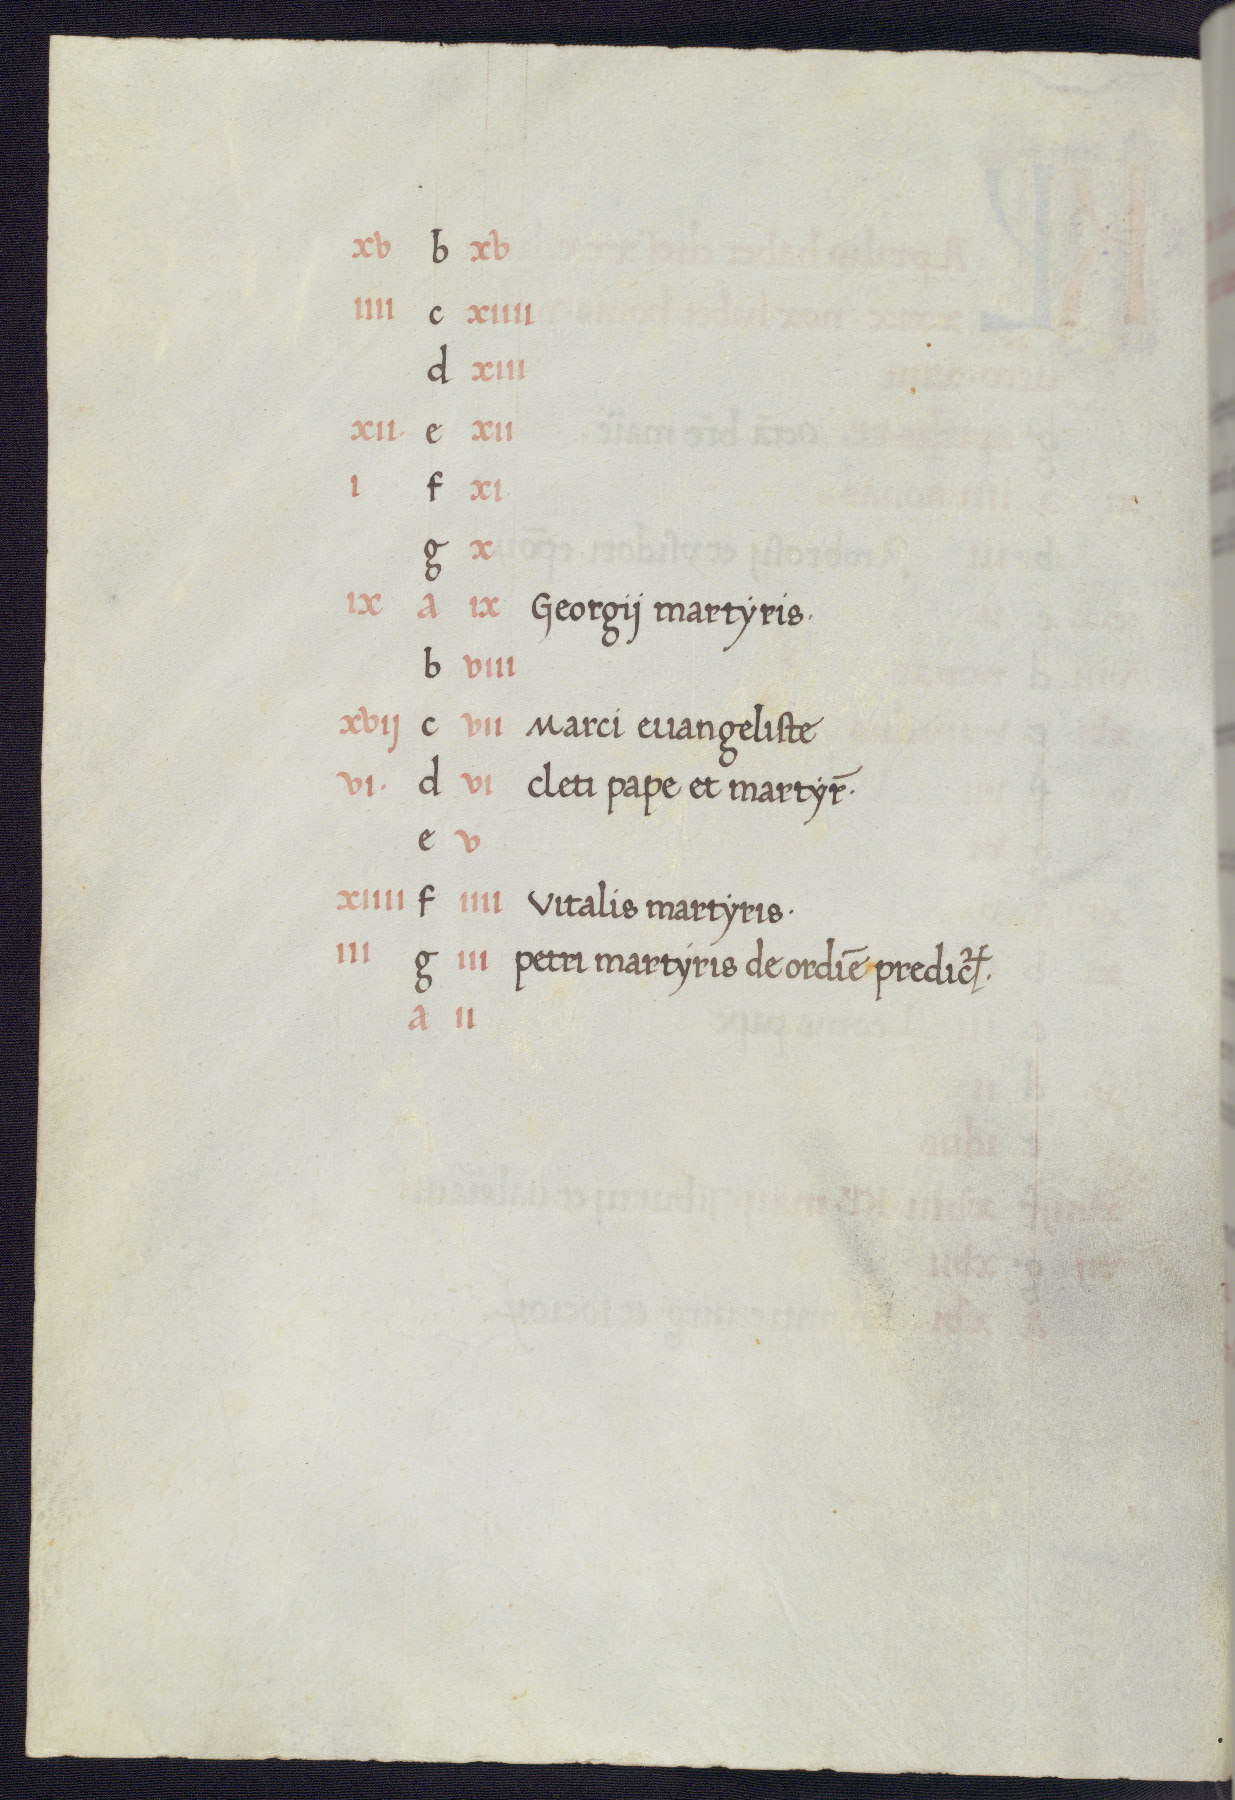 xv b xv
iiii c xiiii
d xiii
xii· e xii
i f xi
g x
ix a ix Georgij martyris·
b viii
xvij c vii Marci euangeliste
vi· d vi cleti pape et martyr̄·
e v
xiiii f iiii vitalis martyris·
iii g iii petri martyris de ordīe predicꝝ·
a ii